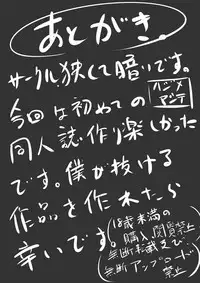 あとがき。
サークル狭くて暗いです。
ハジメマシテ
今回は初めての
同人誌作り楽しかった
です。僕が抜ける
作品を作れたら
幸いです。
18歳未満の
購入、閲覧禁止
無断転載及び
無断アップロード
禁止